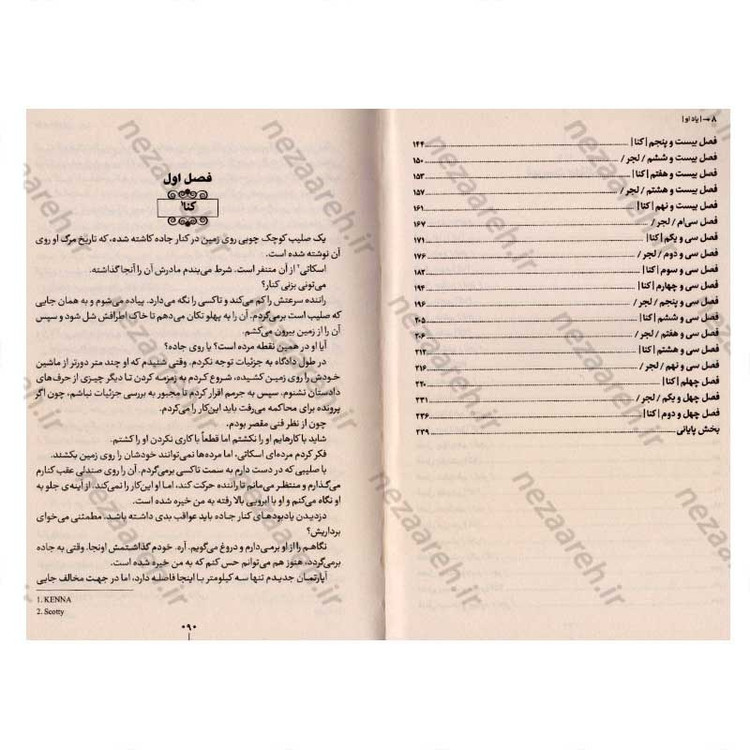 ۸ ← | یاد او |
فصل بیست و پنجم | کنا | ۱۴۴
فصل بیست و ششم / لجر / ۱۵۰
فصل بیست و هفتم | کنا | ۱۵۳
فصل بیست و هشتم / لجر / ۱۵۷
فصل بیست و نهم | کنا | ۱۶۱
فصل سی‌ام / لجر / ۱۶۷
فصل سی و یکم | کنا | ۱۷۱
فصل سی و دوم / لجر / ۱۷۶
فصل سی و سوم | کنا | ۱۸۲
فصل سی و چهارم | کنا | ۱۹۴
فصل سی و پنجم / لجر / ۱۹۶
فصل سی و ششم | کنا | ۲۰۵
فصل سی و هفتم / لجر / ۲۰۶
فصل سی و هشتم | کنا | ۲۱۲
فصل سی و نهم / لجر / ۲۱۶
فصل چهلم | کنا | ۲۲۰
فصل چهل و یکم / لجر / ۲۳۱
فصل چهل و دوم | کنا | ۲۳۶
بخش پایانی ۲۳۹
فصل اول
کنا۱
یک صلیب کوچک چوبی روی زمین در کنار جاده کاشته شده، که تاریخ مرگ او روی
آن نوشته شده است.
اسکاتی۲ از آن متنفر است. شرط می‌بندم مادرش آن را آنجا گذاشته.
می‌تونی بزنی کنار؟
راننده سرعتش را کم می‌کند و تاکسی را نگه می‌دارد. پیاده می‌شوم و به همان جایی
که صلیب است برمی‌گردم. آن را به پهلو تکان می‌دهم تا خاک اطرافش شل شود و سپس
آن را از زمین بیرون می‌کشم.
آیا او در همین نقطه مرده است؟ یا روی جاده؟
در طول دادگاه به جزئیات توجه نکردم. وقتی شنیدم که او چند متر دورتر از ماشین
خودش را روی زمین کشیده، شروع کردم به زمزمه کردن تا دیگر چیزی از حرف‌های
دادستان نشنوم. سپس به جرمم اقرار کردم تا مجبور به بررسی جزئیات نباشم، چون اگر
پرونده برای محاکمه می‌رفت باید این‌کار را می‌کردم.
چون از نظر فنی مقصر بودم.
شاید با کارهایم او را نکشتم اما قطعاً با کاری نکردن او را کشتم.
فکر کردم مرده‌ای اسکاتی، اما مرده‌ها نمی‌توانند خودشان را روی زمین بکشند.
با صلیبی که در دست دارم به سمت تاکسی برمی‌گردم. آن را روی صندلی عقب کنارم
می‌گذارم و منتظر می‌مانم تا راننده حرکت کند، اما او این‌کار را نمی‌کند. از آینه‌ی جلو به
او نگاه می‌کنم و او با ابرویی بالا رفته به من خیره شده است.
دزدیدن یادبودهای کنار جاده باید عواقب بدی داشته باشد. مطمئنی می‌خوای
برداریش؟
نگاهم را از او برمی‌دارم و دروغ می‌گویم. آره. خودم گذاشتمش اونجا. وقتی به جاده
برمی‌گردد، هنوز هم می‌توانم حس کنم که به من خیره شده است.
آپارتمان جدیدم تنها سه کیلومتر با اینجا فاصله دارد، اما در جهت مخالف جایی
1. KENNA
2. Scotty
۰۹۰
nezaareh.ir
nezaareh.ir
nezaareh.ir
nezaareh.ir
nezaareh.ir
nezaareh.ir
nezaareh.ir
nezaareh.ir
nezaareh.ir